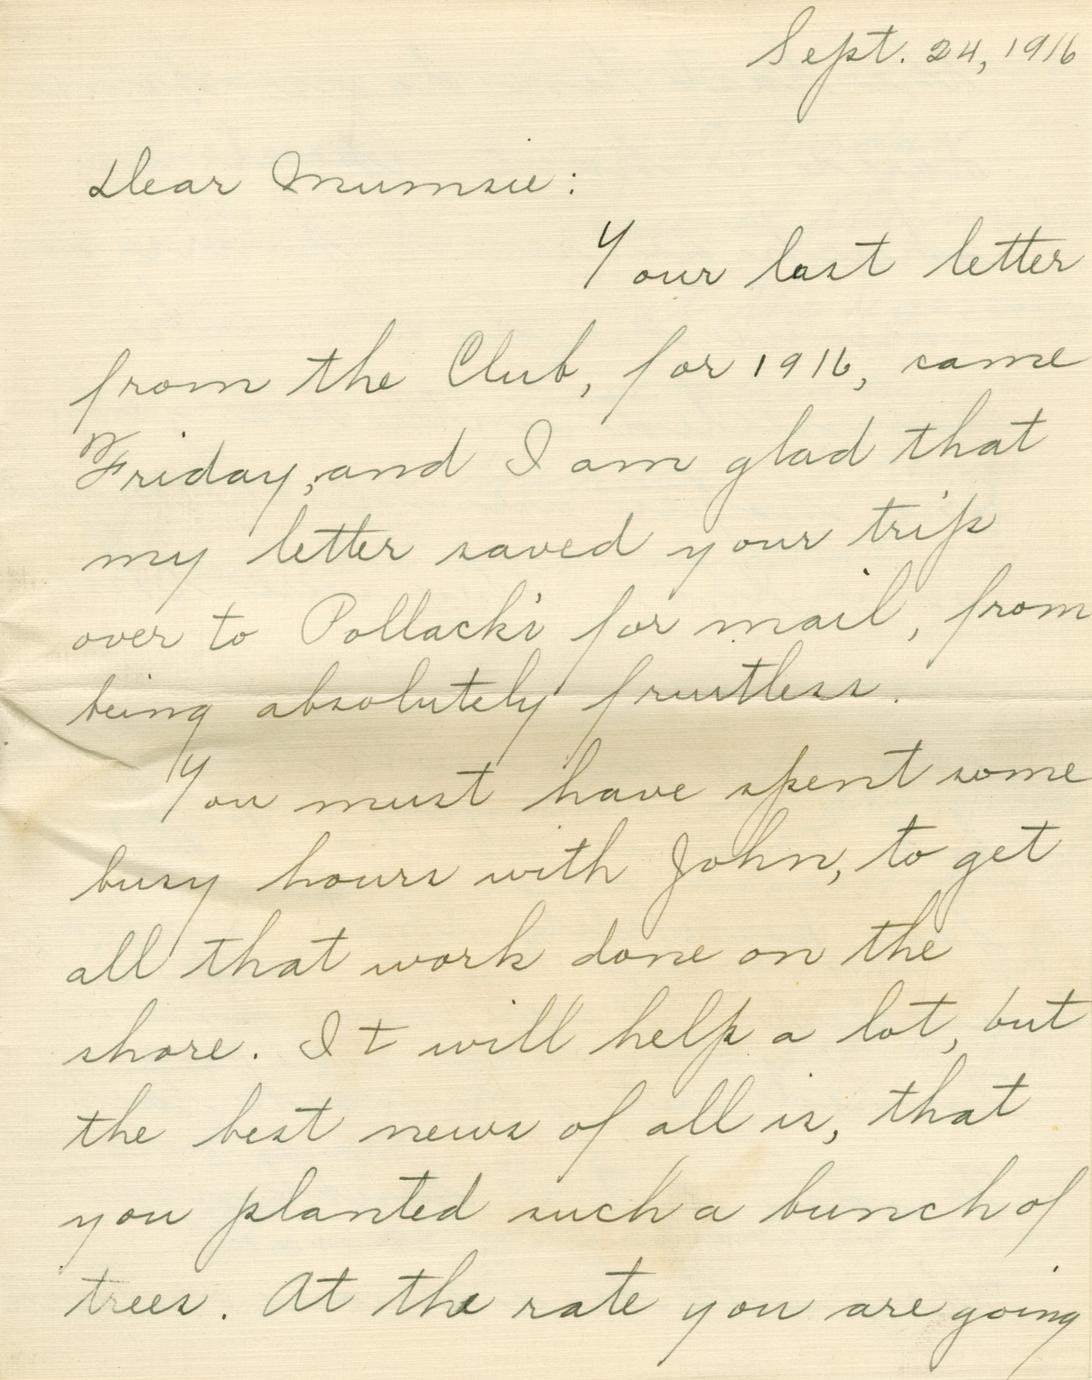 Sept. 24, 1916
Dear Mumsie:
Your last letter
from the Club, for 1916, came
Friday, and I am glad that
my letter saved your trip
over to Pollack's for mail, from
being absolutely fruitless.
You must have spent some
busy hours with John, to get
all that work done on the
shore. It will help a lot, but
the best news of all is, that
you planted such a bunch of
trees. At the rate you are going